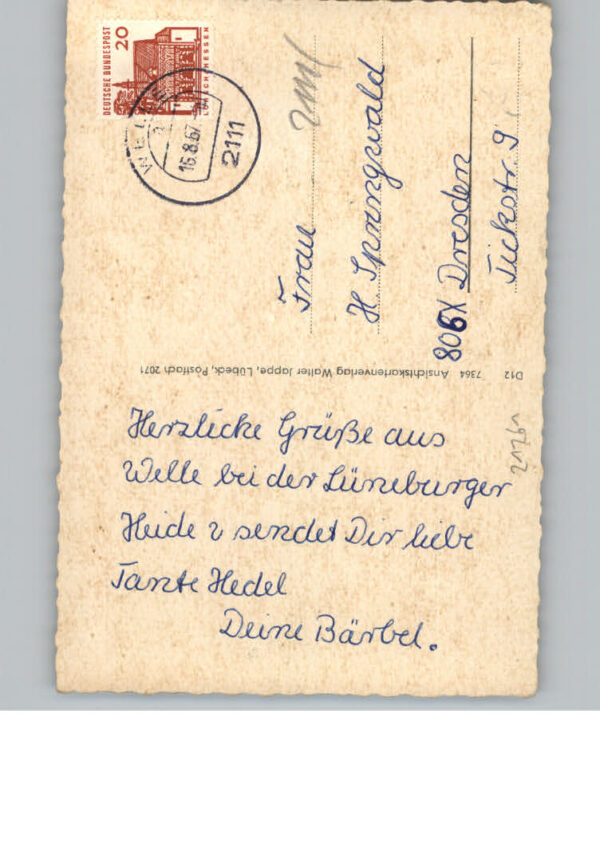 DEUTSCHE BUNDESPOST
20
LORSCH/HESSEN
WELLE
16.8.67
2111
Frau
H. Springwald
806X Dresden
Tickstr. 9
D12 7364 Ansichtskartenverlag Walter Jappe, Lübeck, Postfach 2071
Herzlicke Grüße aus
Welle bei der Lüneburger
Heide sendet Dir liebe
Tante Hedel
Deine Bärbel.